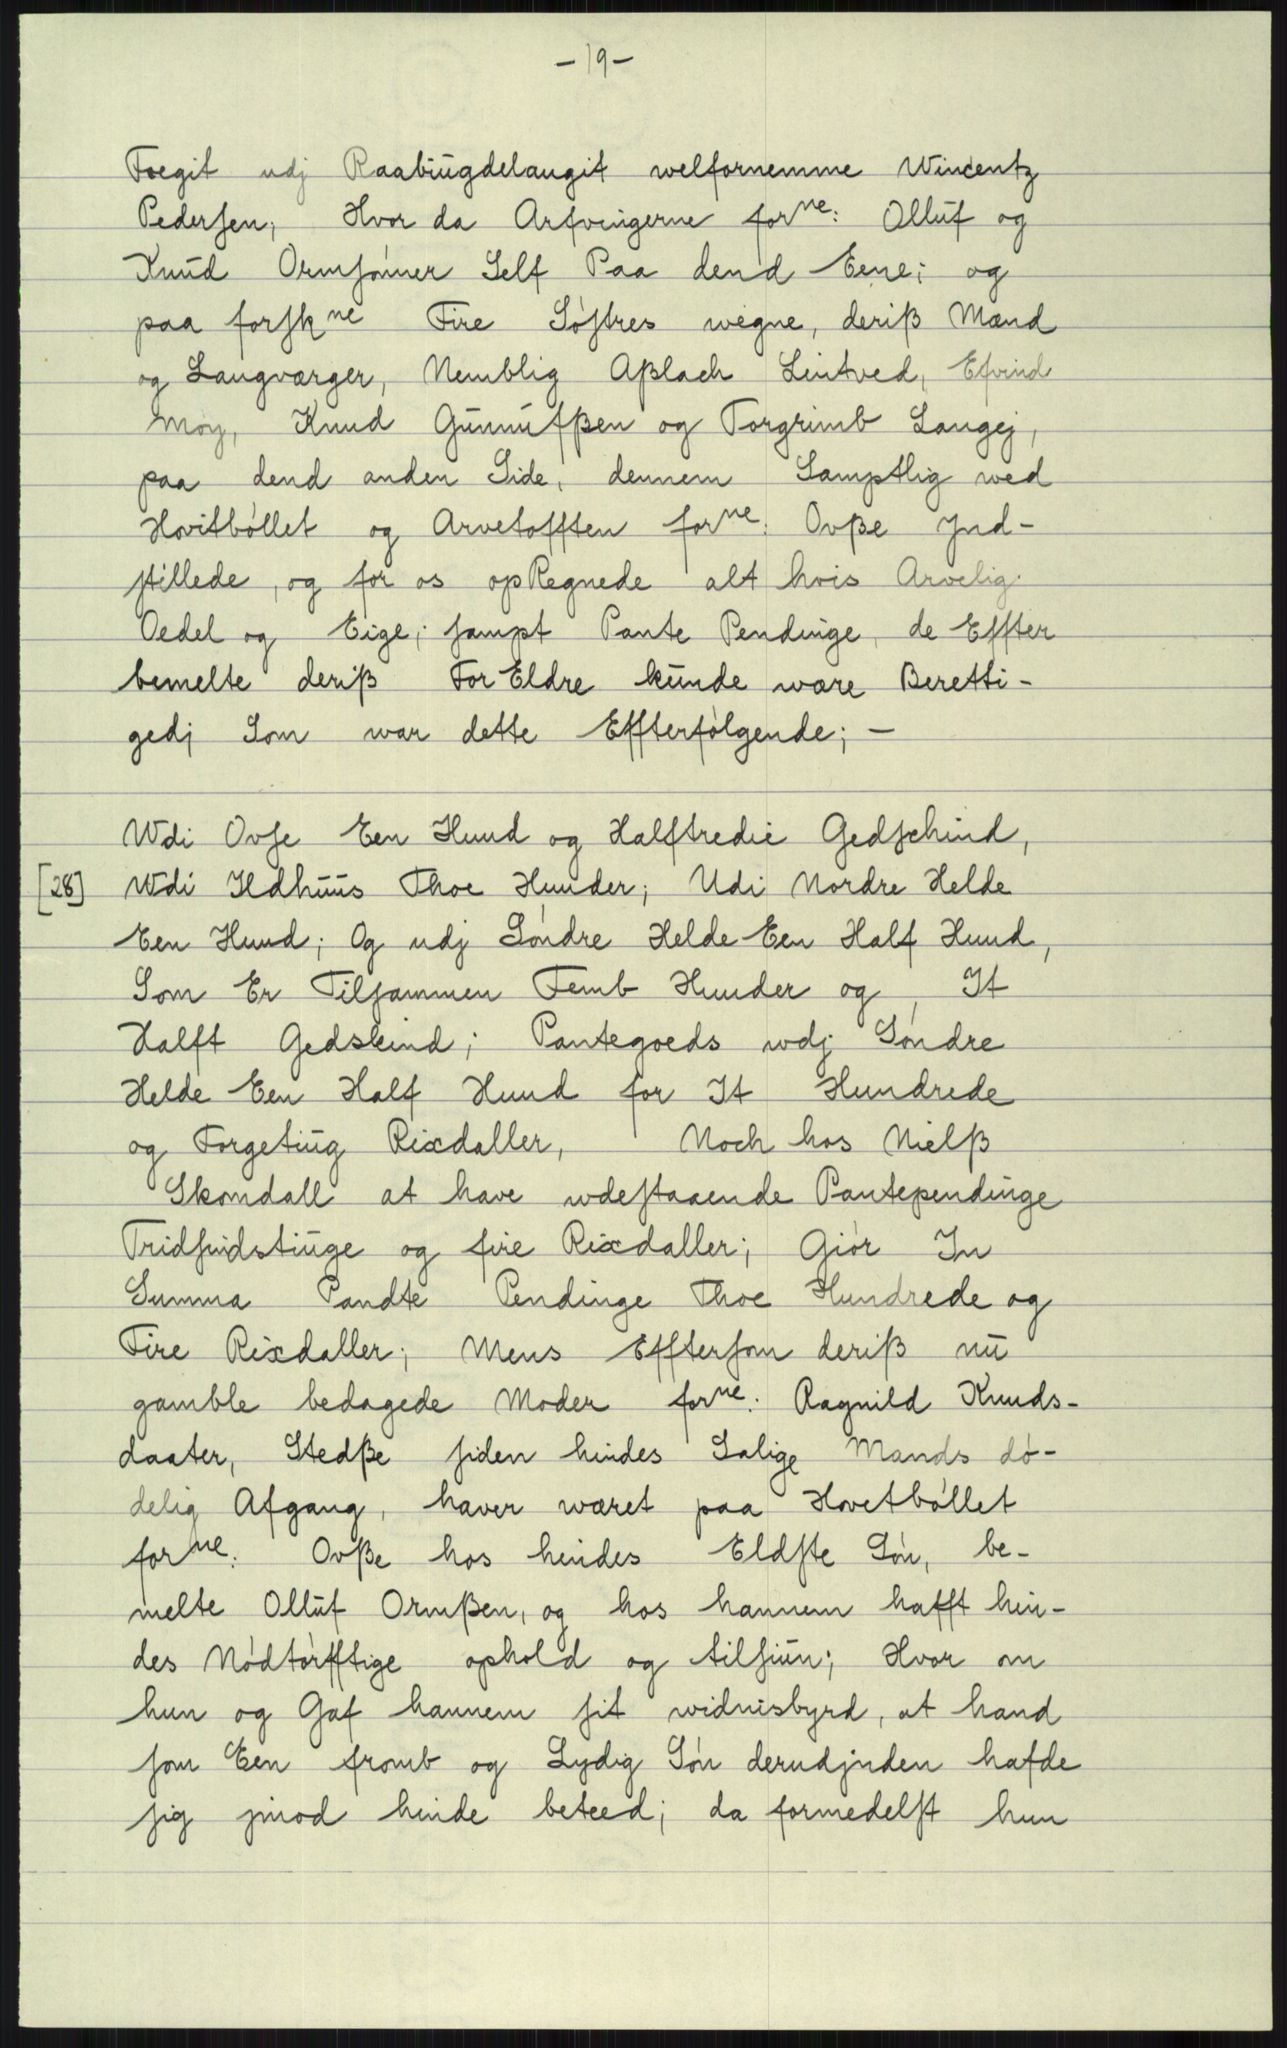 -19-
Foegit udj Raabÿugdelaugit welfornemme Wincentz
Pedersen; Hvor da Arfvingerne for^ne: Olluf og
Knud Ormsønner Self Paa dend Eene; og
paa forsk^ne Fire Søstres wegne, deriß Mænd
og Laugværger, Nemblig Aßlach Lintved, Efvind
Moy, Knud Gunnufßen og Torgrimb Langej,
paa dend anden Side, dennem Samptlig wed
Hovitbøllet og Arvetofften for^ne: Ovße Jnd-
stillede, og for os opRegnede alt hvis Arvelig
Oedel og Eige; sampt Pante Pendinge, de Effter
bemelte deriß ForEldre kunde wære Beretti-
gedj Som war dette Effterfølgende; -
Wdi Ovse Een Huud og Halftredie Gedschind,
[28] Wdi Ildhuus Thoe Huuder; Udi Nordre Helde
Een Huud; Og udj Søndre Helde Een Half Huud,
Som Er Tilsammen Femb Huuder og, It
Halft Gedskind; Pantegoeds wdj Søndre
Helde Een Half Huud for It Hundrede
og Forgetiug Rixdaller, Noch hos Nielß
Skomdall at have wdestaaende Pantependinge
Tridsindstiuge og fire Rixdaller; Giør In
Summa Pandte Pendinge Thoe Hundrede og
Fire Rixdaller; Mens Efftersom deriß nu
gamble bedagede Moder for^ne: Ragnild Knuds-
daater, Stedße siden hindes Salige Mands dø-
delig Afgang, haver wæret paa Hovetbøllet
for^ne: Ovße hos hindes Eldste Søn, be-
melte Olluf Ormßen, og hos hannem hafft hin-
des Nødtørfftige ophold og tilsiun; Hvor om
hun og Gaf hannem sit widnisbyrd, at hand
som Een fromb og Lydig Søn derudjnden hafde
sig jmod hinde beteed; da formedelst hun